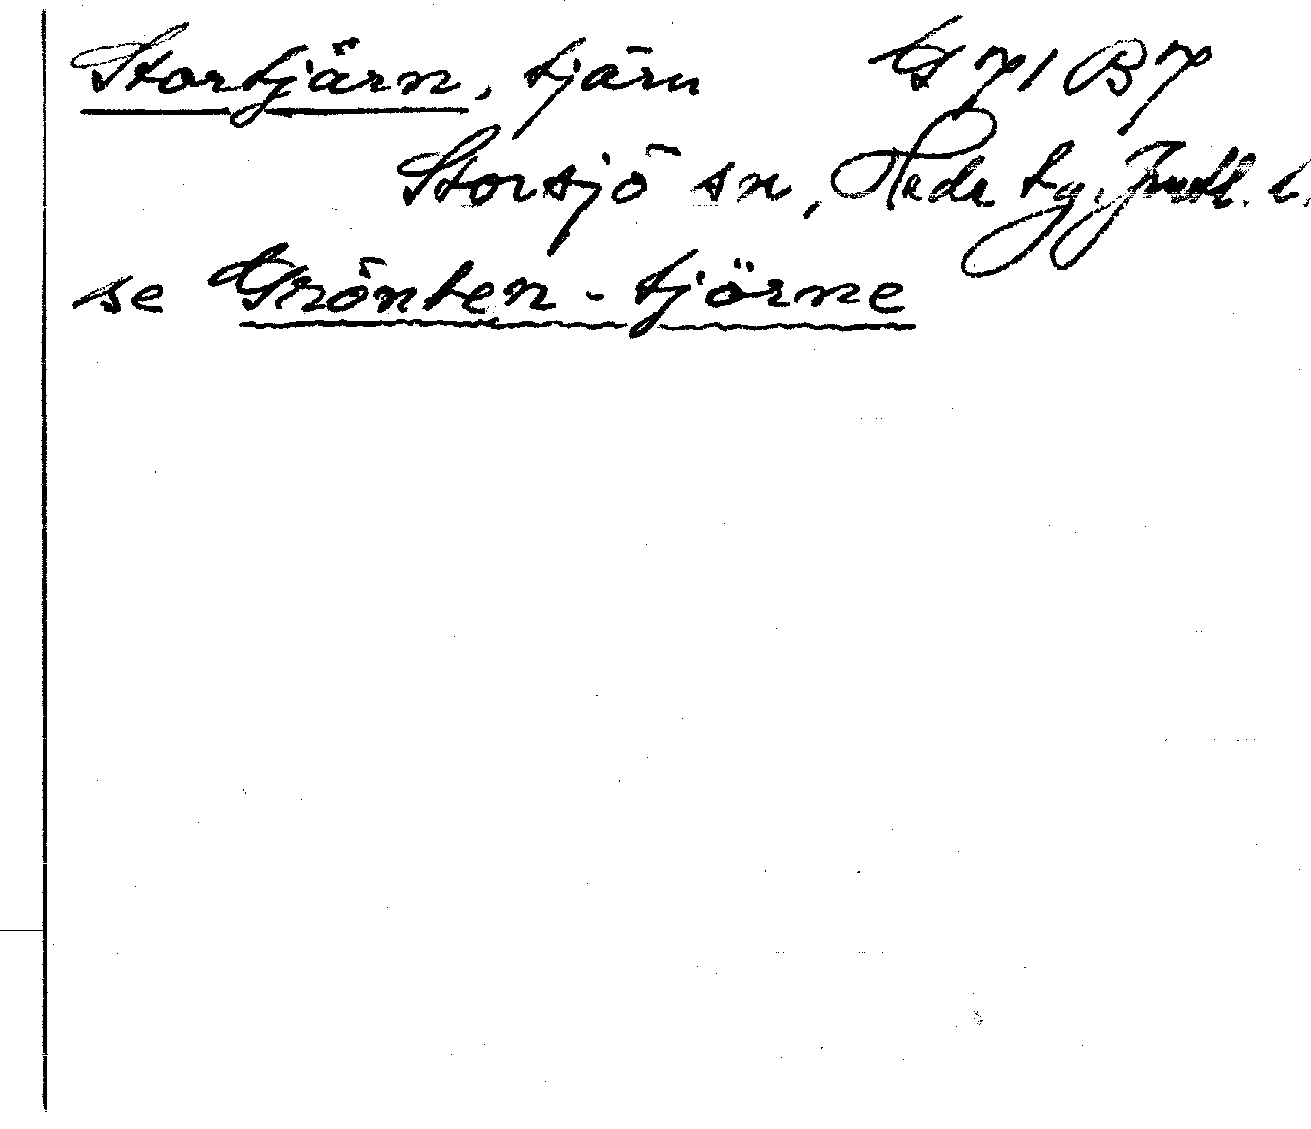 Stortjärn, tjärn Es 71 B7
Storsjö sn, Hede tg. Jmtl. l.
se Grönten-tjörne